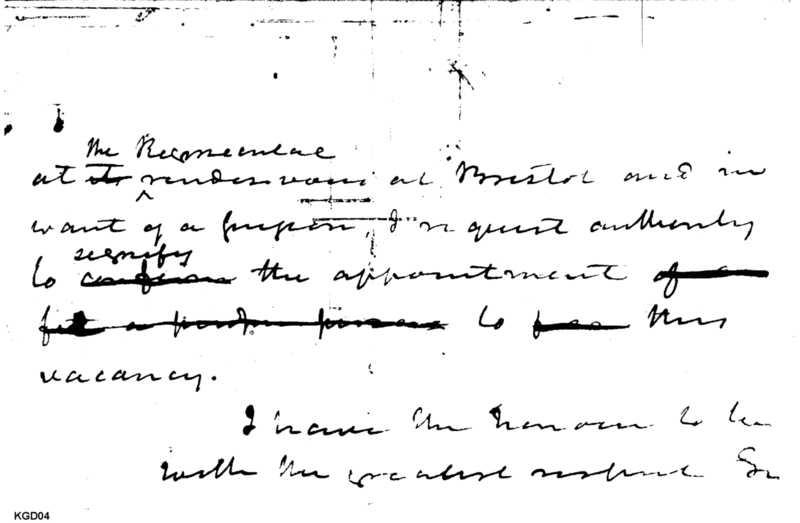 the Regimental
at its rendezvous at Bristol and in
want of a surgeon, I request authority
signify
to confirm the appointment of a
fit a proper person to this
vacancy.
I have the honour to be
with the greatest respect Sir
KGD04